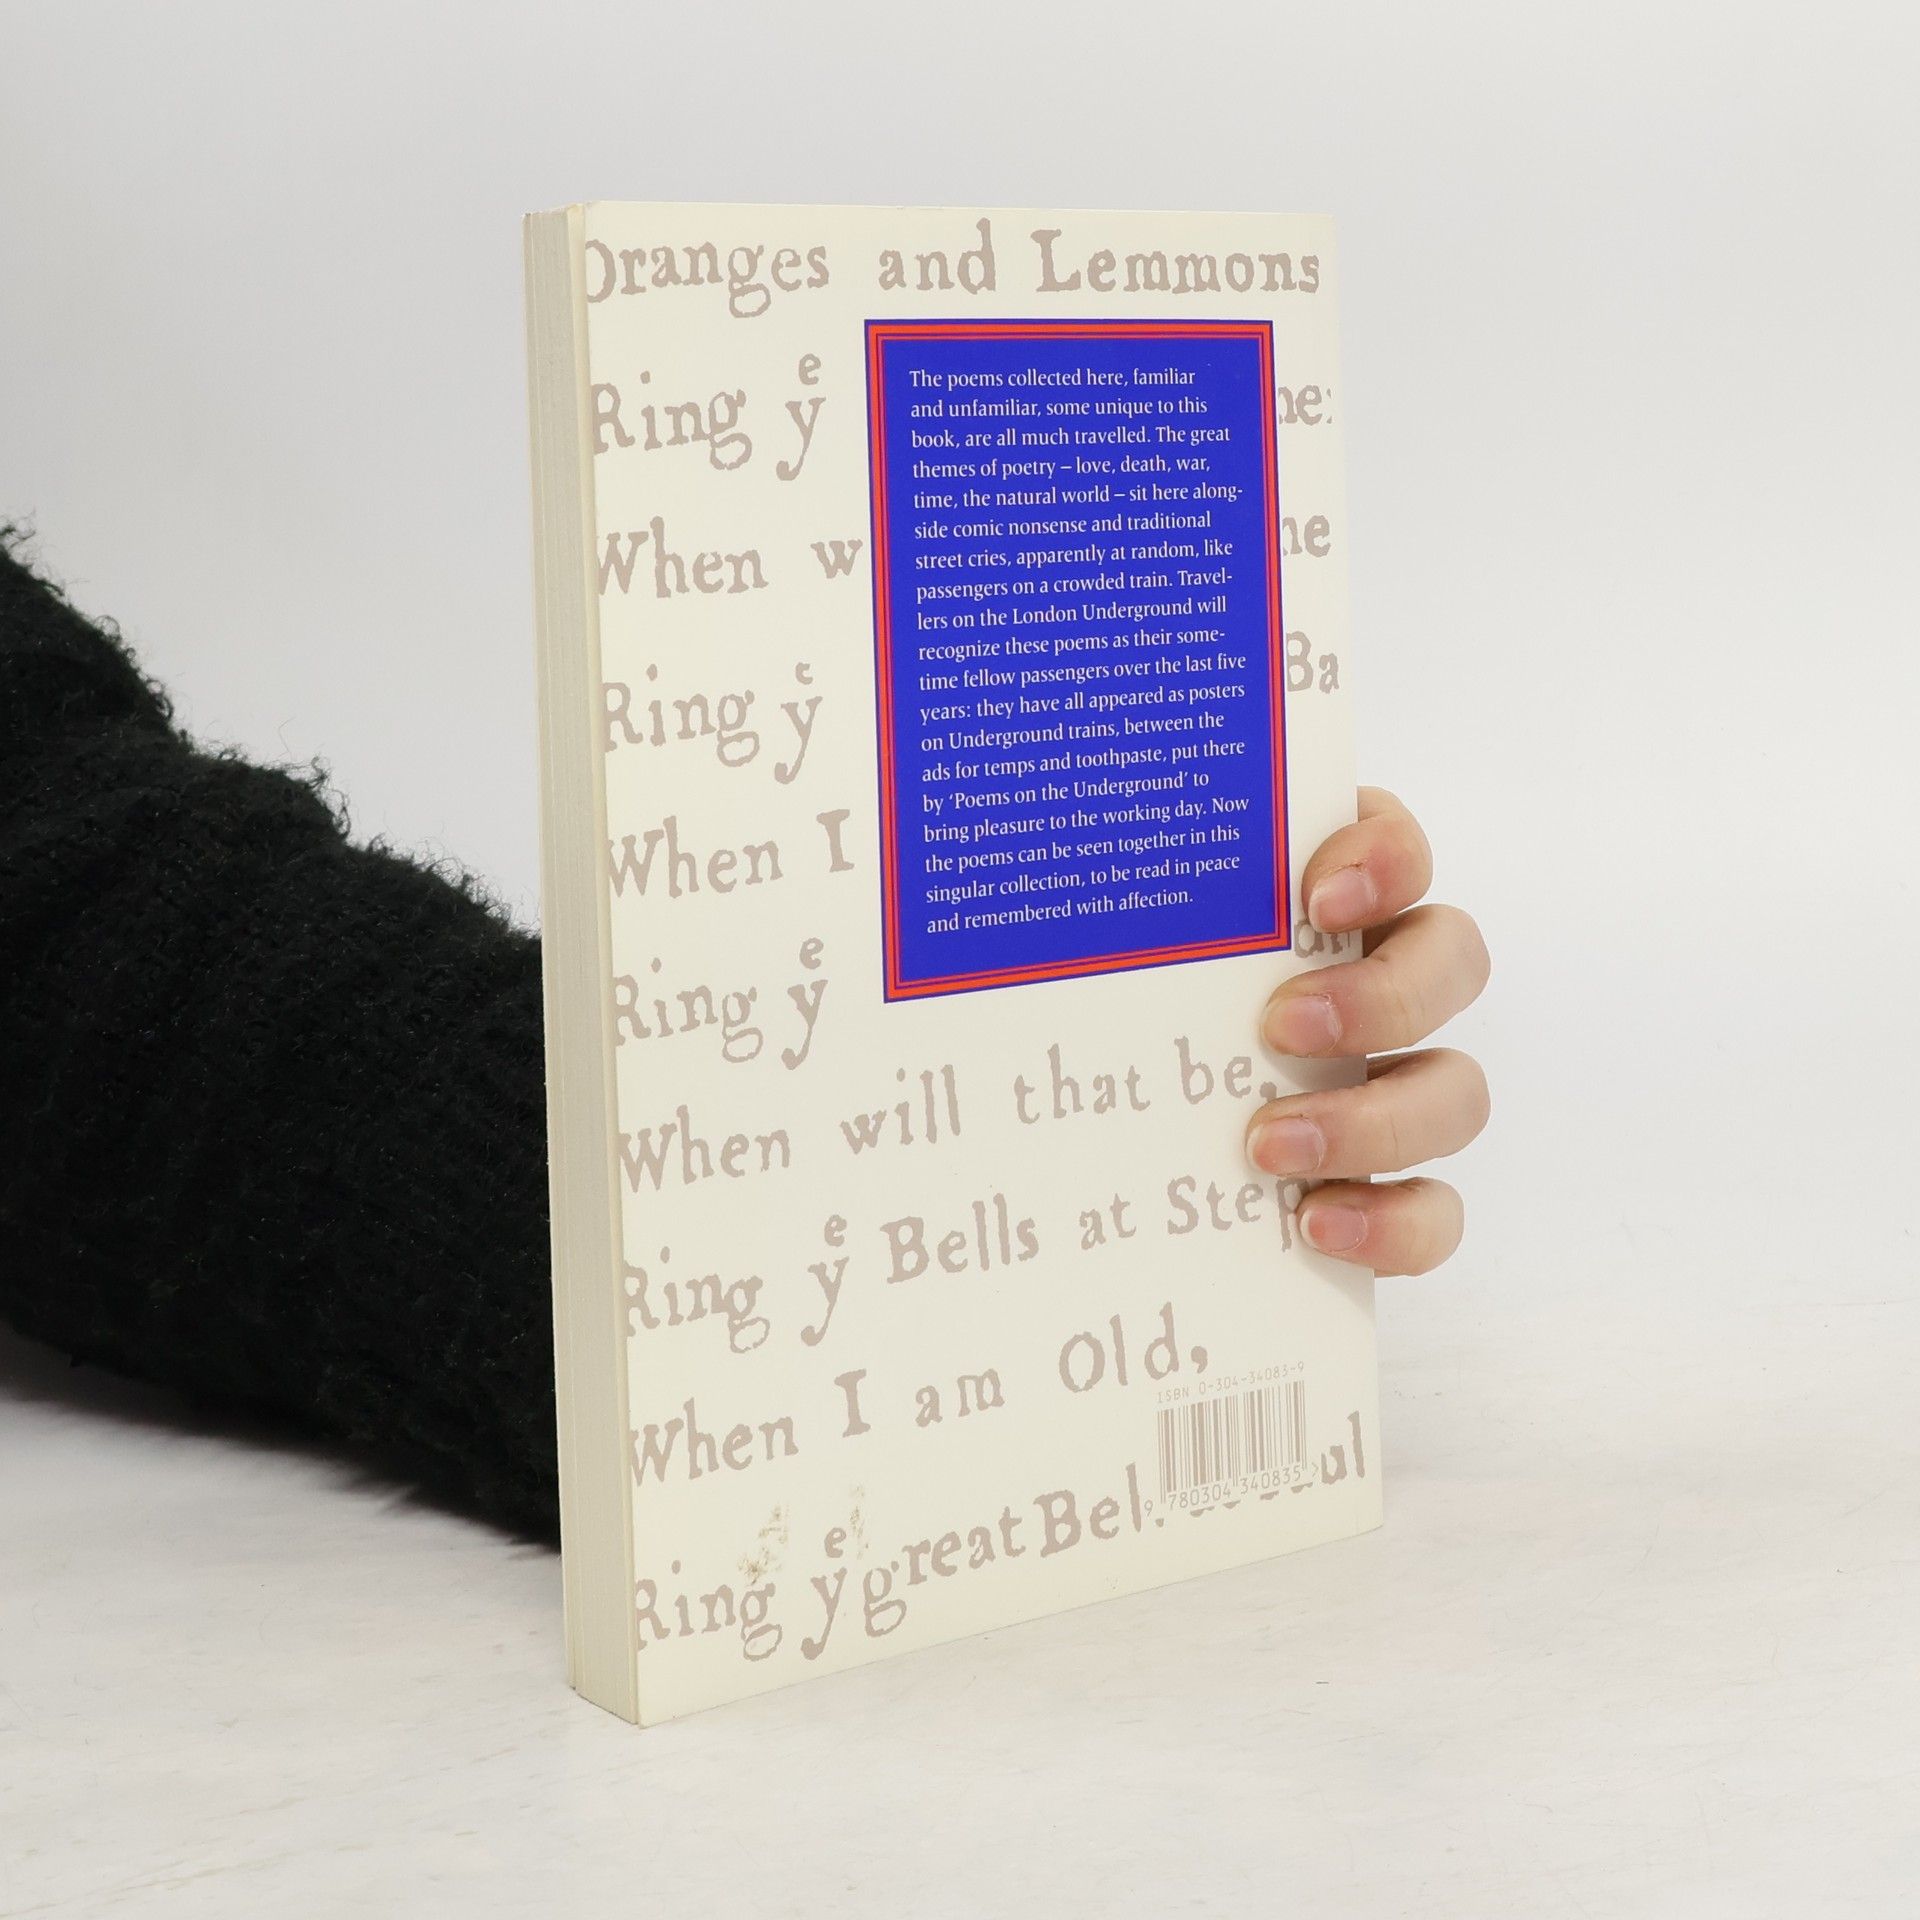 Oranges and Lemmons
Ring yᵉ
The poems collected here, familiar
and unfamiliar, some unique to this
book, are all much travelled. The great
themes of poetry – love, death, war,
time, the natural world – sit here along-
side comic nonsense and traditional
street cries, apparently at random, like
passengers on a crowded train. Travel-
lers on the London Underground will
recognize these poems as their some-
time fellow passengers over the last five
years: they have all appeared as posters
on Underground trains, between the
ads for temps and toothpaste, put there
by ‘Poems on the Underground’ to
bring pleasure to the working day. Now
the poems can be seen together in this
singular collection, to be read in peace
and remembered with affection.
When w
Ring yᵉ Ba
When I
Ring yᵉ
When will that be,
Ring yᵉ Bells at Step
When I am Old,
ISBN 0-304-34083-9
9 780304 340835 >
Ring yᵉ great Bel